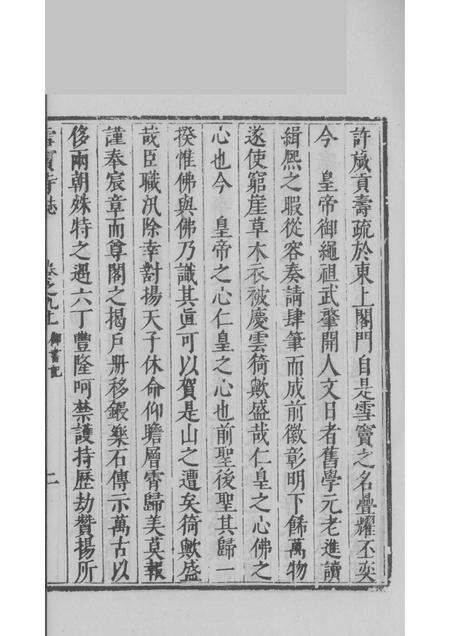 許歲貢壽疏於東上閤門自是雪竇之名疊耀丕奕
今　皇帝御繩祖武肇開人文日者舊學元老進讀
緝熙之暇從容奏請肆筆而成前徽彰明下飾萬物
遂使窮崖草木衣被慶雲猗歟盛哉仁皇之心佛之
心也今　皇帝之心仁皇之心也前聖後聖其歸一
揆惟佛與佛乃識其眞可以賀是山之遭矣猗歟盛
哉臣職汛除幸對揚天子休命仰瞻層霄歸美莫報
謹奉宸章而尊閣之揭戶册移鍛樂石傳示萬古以
侈兩朝殊特之遇六丁豐隆呵禁護持歷劫贊揚所
雪竇寺誌　卷之九上　御書記　二